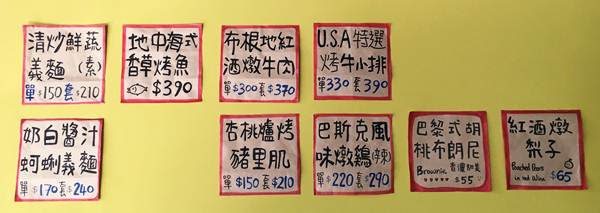 清炒鮮蔬
義麵(素)
單$150 套$210
地中海式
香草烤魚
$390
布根地紅
酒燉牛肉
單$300 套$370
U.S.A特選
烤牛小排
單330 套390
奶白醬汁
蚵蜊義麵
單$170 套$240
杏桃爐烤
豬里肌
單$150 套$210
巴斯克風
味燉鷄(辣)
單$220 套$290
巴黎式胡
桃布朗尼
Brownie
$55
紅酒燉
梨子
Poached Pears
in red Wine
$65